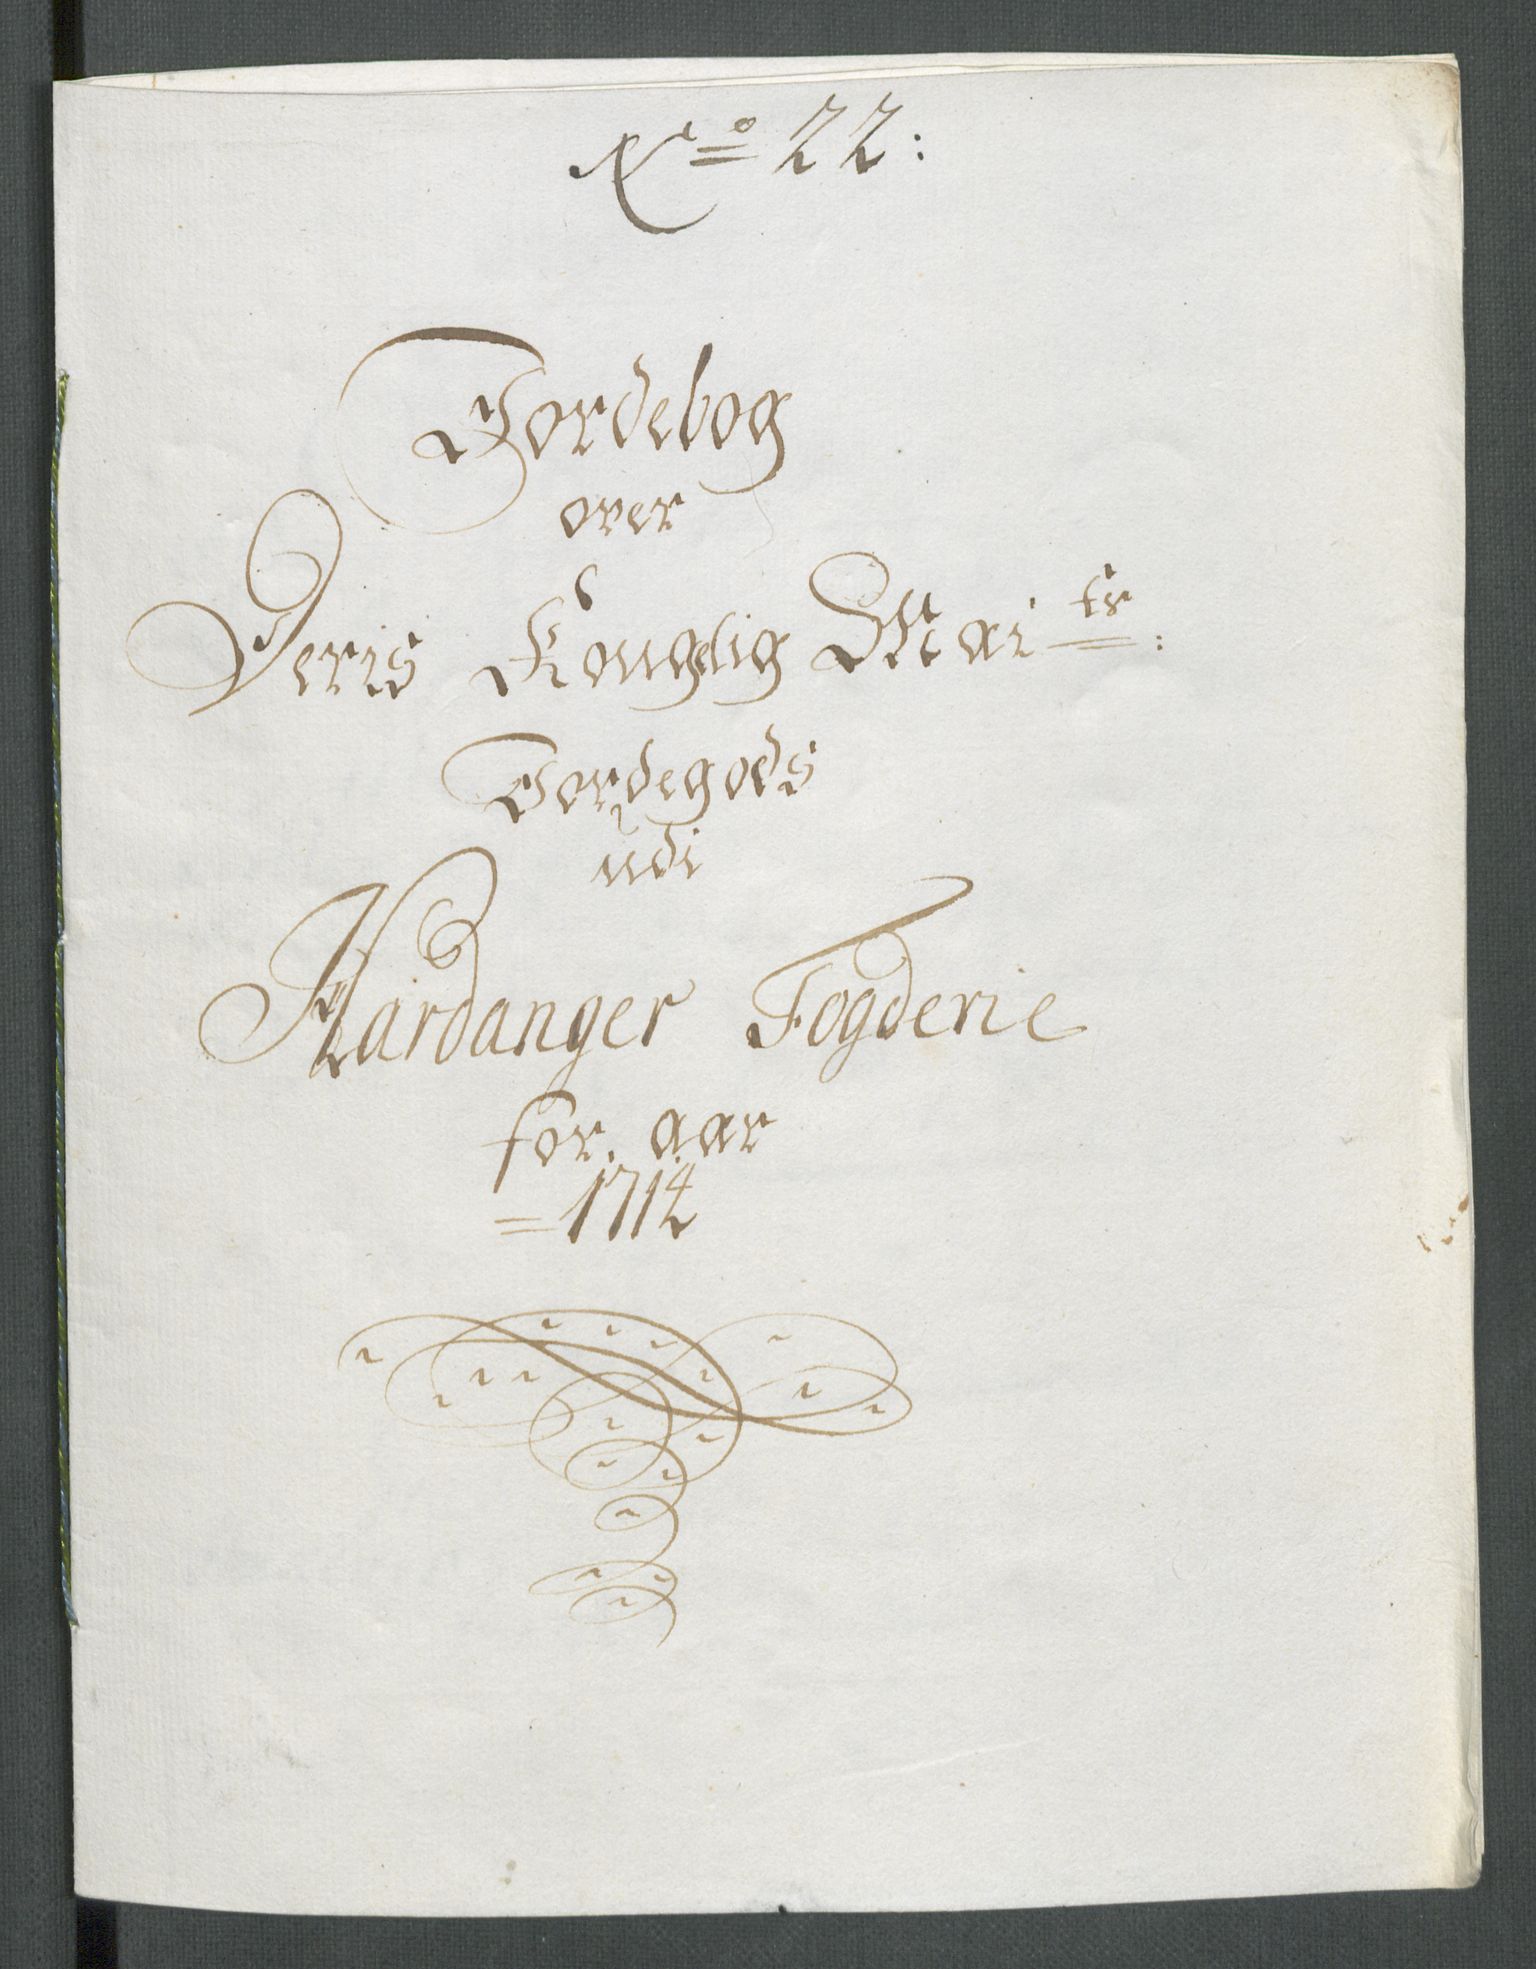 No 22:
Jordebog
over
Deris Kongelig Maits:
Jordegods
udi
Hardanger Fogderie
for aar
= 1714